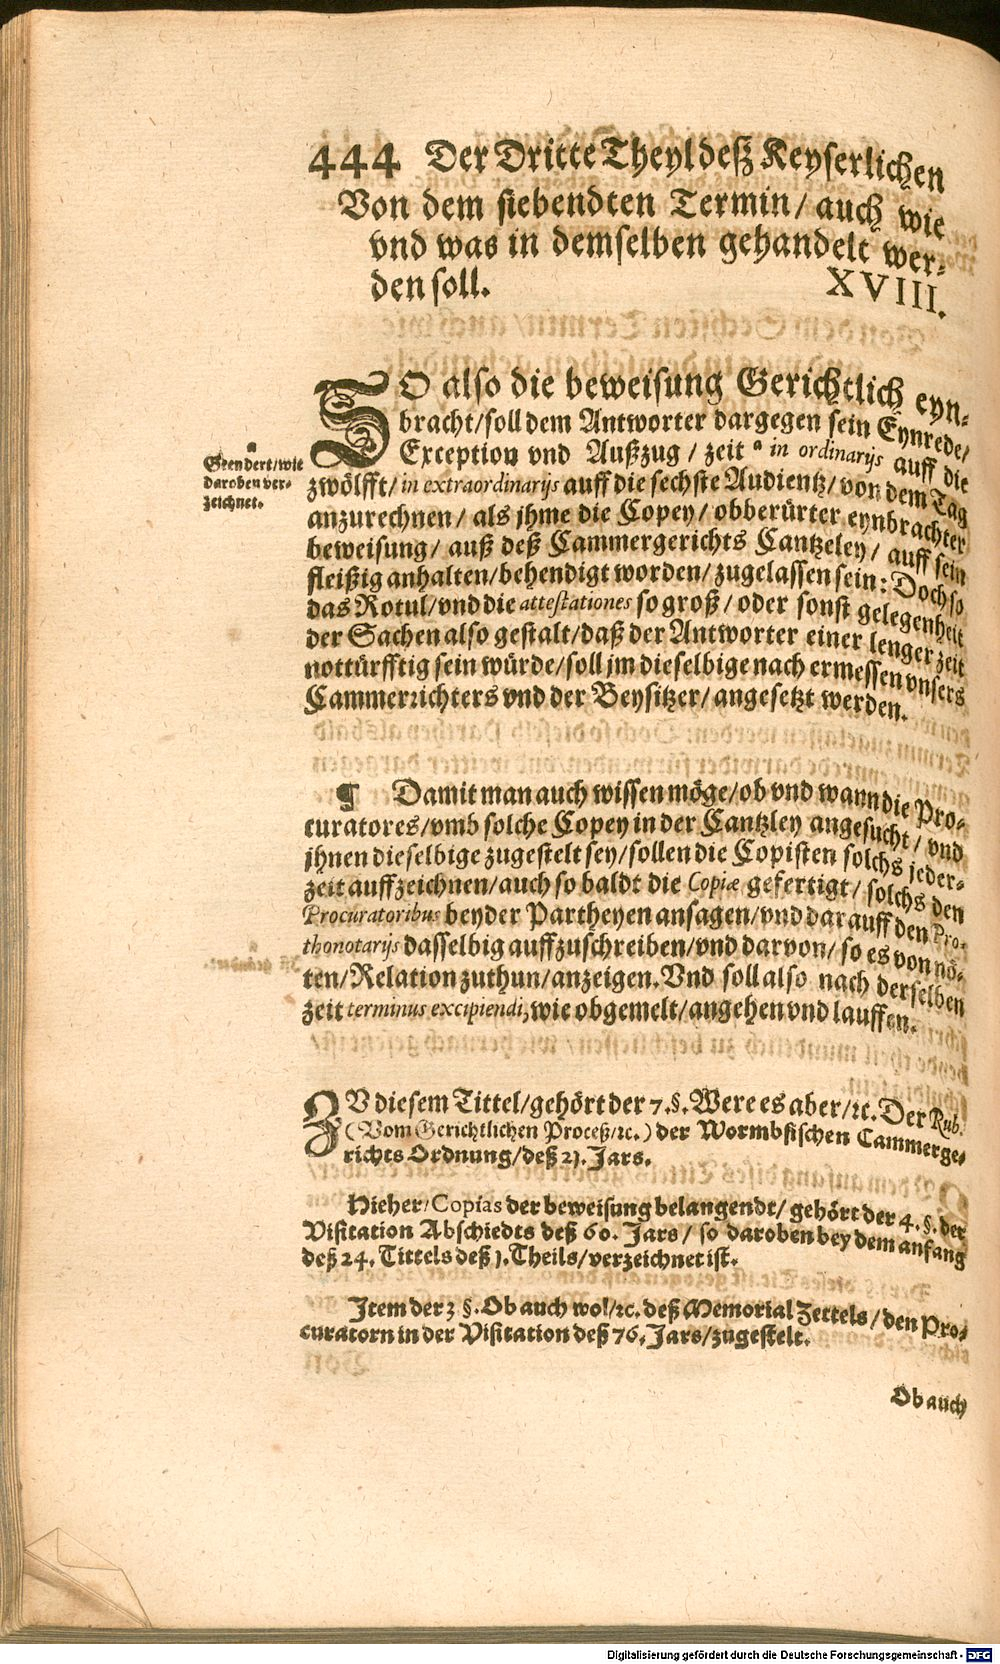 444 Der Dritte Theyl deß Keyserlichen
Von dem siebendten Termin/ auch wie
vnd was in demselben gehandelt wer-
den soll. XVIII.
SO also die beweisung Gerichtlich eyn-
bracht/soll dem Antworter dargegen sein Eynrede/
Exception vnd Außzug / zeit a in ordinarijs auff die
a
Geendert/wie
daroben ver-
zeichnet.
zwölfft/in extraordinarijs auff die sechste Audientz/von dem Tag
anzurechnen/ als jhme die Copey/ obberürter eynbrachter
beweisung/ auß deß Cammergerichts Cantzeley/ auff sein
fleißig anhalten/behendigt worden/zugelassen sein: Doch so
das Rotul/vnd die attestationes so groß/ oder sonst gelegenheit
der Sachen also gestalt/daß der Antworter einer lenger zeit
nottürfftig sein würde/soll jm dieselbige nach ermessen vnsers
Cammerrichters vnd der Beysitzer/angesetzt werden.
¶ Damit man auch wissen möge/ob vnd wann die Pro-
curatores/vmb solche Copey in der Cantzley angesucht/ vnd
jhnen dieselbige zugestelt sey/sollen die Copisten solchs jeder-
zeit auffzeichnen/auch so baldt die Copiæ gefertigt/ solchs den
Procuratoribus beyder Partheyen ansagen/vnd darauff den Pro-
thonotarijs dasselbig auffzuschreiben/vnd darvon/ so es von nö-
ten/Relation zuthun/anzeigen. Vnd soll also nach derselben
zeit terminus excipiendi, wie obgemelt/angehen vnd lauffen.
ZV diesem Tittel/gehört der 7.§. Were es aber/ꝛc. Der Rub.
(Vom Gerichtlichen Proceß/ꝛc.) der Wormbsischen Cammerge-
richts Ordnung/deß 21. Jars.
Hieher/Copias der beweisung belangendt/ gehört der 4.§. der
Visitation Abschiedts deß 60. Jars/ so daroben bey dem anfang
deß 24. Tittels deß 1. Theils/verzeichnet ist.
Item der 3 §. Ob auch wol/ꝛc. deß Memorial Zettels/den Pro-
curatorn in der Visitation deß 76. Jars/zugestelt.
Ob auch
Digitalisierung gefördert durch die Deutsche Forschungsgemeinschaft - DFG